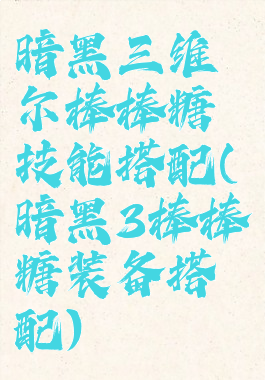 暗黑三维
尔棒棒糖
技能搭配(
暗黑3棒棒
糖装备搭
配)